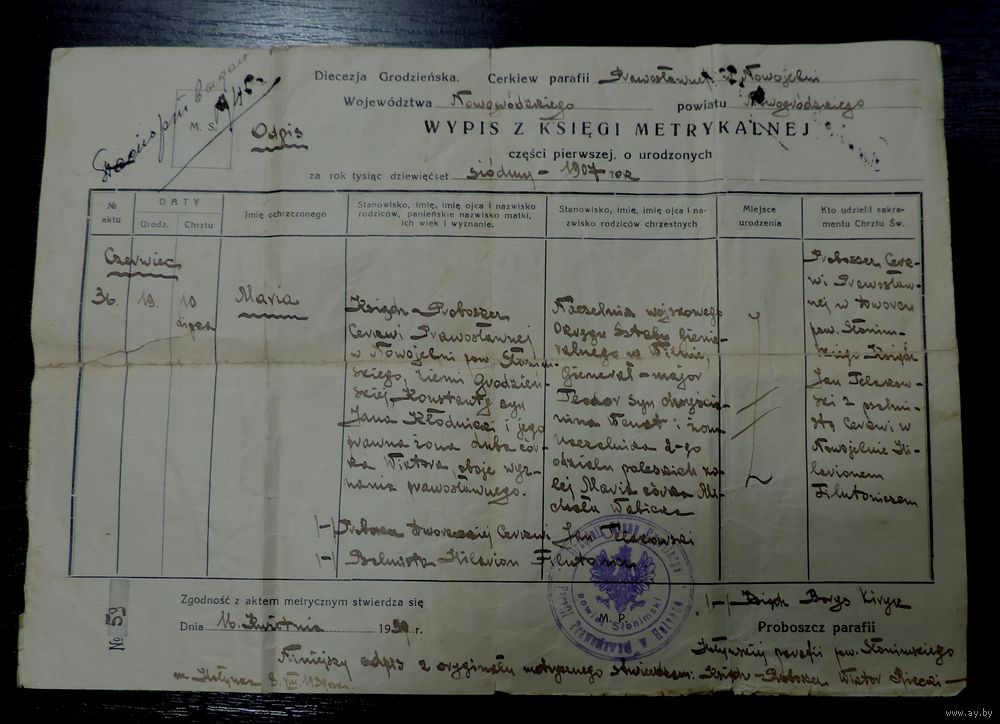 Diecezja Grodzieńska. Cerkiew parafii Prawosławnej w Nowojelni
Województwa Nowogródzkiego powiatu Nowogródzkiego
M. S.
1945
Odpis
WYPIS Z KSIĘGI METRYKALNEJ
części pierwszej, o urodzonych
za rok tysiąc dziewięćset siódmy – 1907 rok
№ aktu
DATY
Urodz.
Chrztu
Imię ochrzczonego
Stanowisko, imię, imię ojca i nazwisko
rodziców, panieńskie nazwisko matki,
ich wiek i wyznanie.
Stanowisko, imię, imię ojca i na-
zwisko rodziców chrzestnych
Miejsce
urodzenia
Kto udzielił sakra-
mentu Chrztu Św.
Czerwiec
36.
19.
10
lipca
Maria
Ksiądz Proboszcz
Cerkwi Prawosławnej
w Nowojelni pow. Słonim-
skiego, ziemi Grodzień-
skiej, Konstanty syn
Jana Kłodnicki i jego
prawna żona Luba cór-
ka Wiktora, oboje wyz-
nania prawosławnego.
Naczelnik wojskowego
Okręgu Sztabu Gene-
ralnego w Wilnie,
Gienerał-major
Teodor syn
i żona
naczelnika 2-go
oddziału poleskich ko-
lej Maria córka Mi-
chała
Proboszcz Cerk-
wi Prawosław-
nej w Dworcu
pow. Słonim-
skiego Ksiądz
Jan
ski z psalmi-
stą Cerkwi w
Nowojelnie Hi-
larionem
Filutoniczem
/-/ Proboszcz dworzeckiej Cerkwi Jan
/-/ Psalmista Hilarion
powiat Słonimski
M. P.
№ 59
Zgodność z aktem metrycznym stwierdza się
Dnia 16 Kwietnia 1931 r.
/-/ Ksiądz Borys
Proboszcz parafii
parafii pow. Słonimskiego
Niniejszy odpis z oryginału metrycznego stwierdzam: Ksiądz – Proboszcz Wiktor
m. 8. VIII. 1939 roku.
www.ay.by